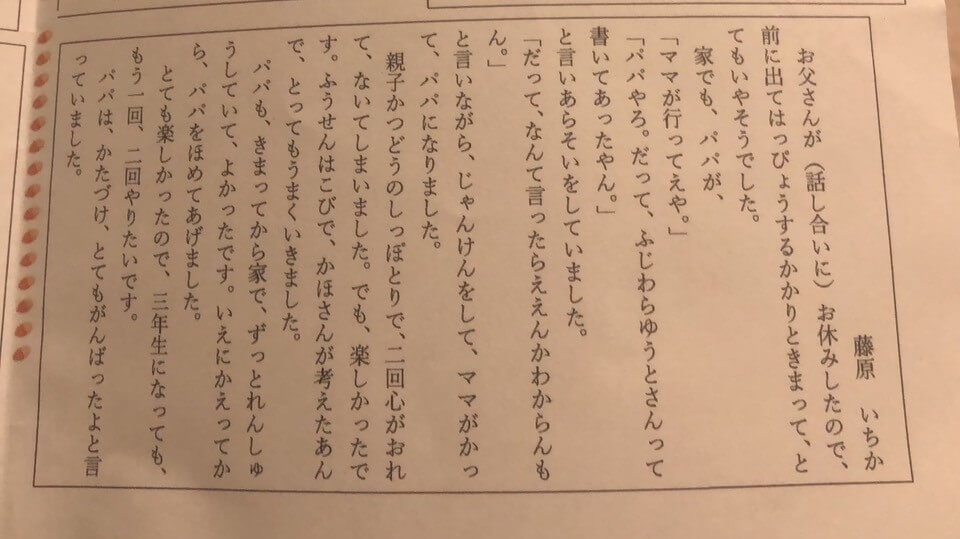 藤原　いちか
　お父さんが（話し合いに）お休みしたので、
前に出てはっぴょうするかかりときまって、と
てもいやそうでした。
　家でも、パパが、
「ママが行ってえや。」
「パパやろ。だって、ふじわらゆうとさんって
書いてあったやん。」
と言いあらそいをしていました。
「だって、なんて言ったらええんかわからんも
ん。」
と言いながら、じゃんけんをして、ママがかっ
て、パパになりました。
　親子かつどうのしっぽとりで、二回心がおれ
て、ないてしまいました。でも、楽しかったで
す。ふうせんはこびで、かほさんが考えたあん
で、とってもうまくいきました。
　パパも、きまってから家で、ずっとれんしゅ
うしていて、よかったです。いえにかえってか
ら、パパをほめてあげました。
　とても楽しかったので、三年生になっても、
もう一回、二回やりたいです。
　パパは、かたづけ、とてもがんばったよと言
っていました。